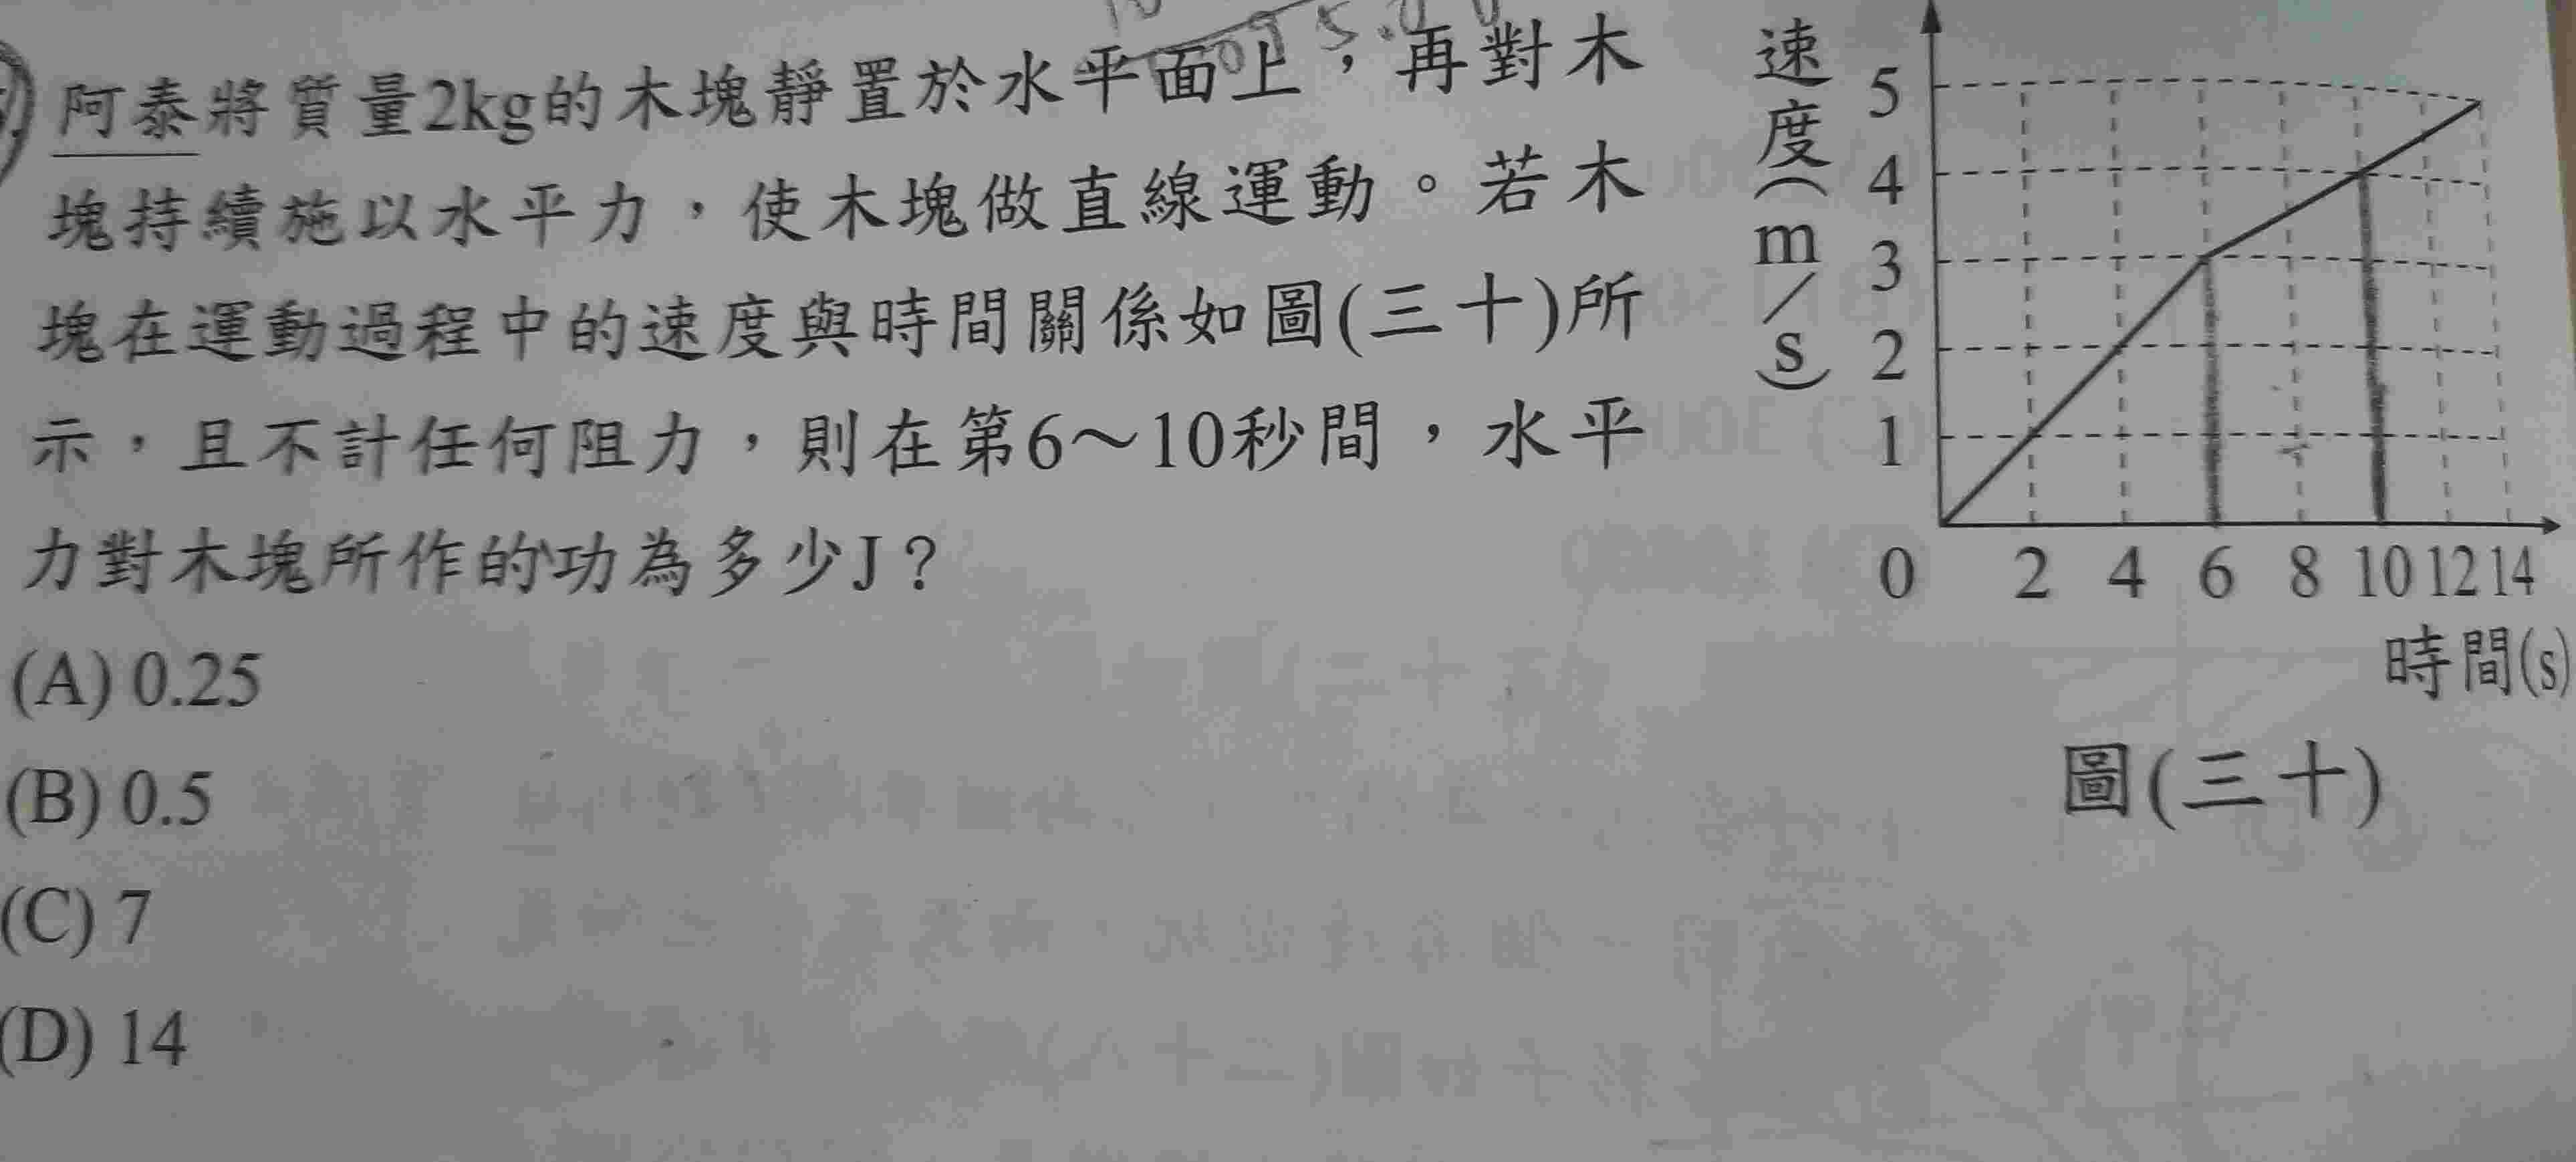 阿泰將質量2kg的木塊靜置於水平面上，再對木
塊持續施以水平力，使木塊做直線運動。若木
塊在運動過程中的速度與時間關係如圖(三十)所
示，且不計任何阻力，則在第6～10秒間，水平
力對木塊所作的功為多少J？
(A) 0.25
(B) 0.5
(C) 7
(D) 14
速度(m/s)
5
4
3
2
1
0 2 4 6 8 10 12 14
時間(s)
圖(三十)